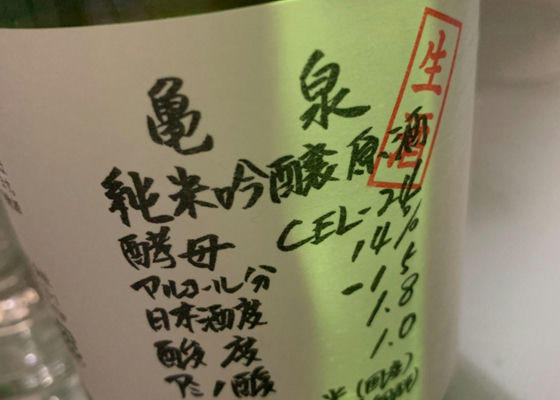 生酒
亀泉
純米吟醸原酒
酵母 CEL-24
アルコール分 14%
日本酒度 -15
酸度 1.8
アミノ酸 1.0
米(国産)